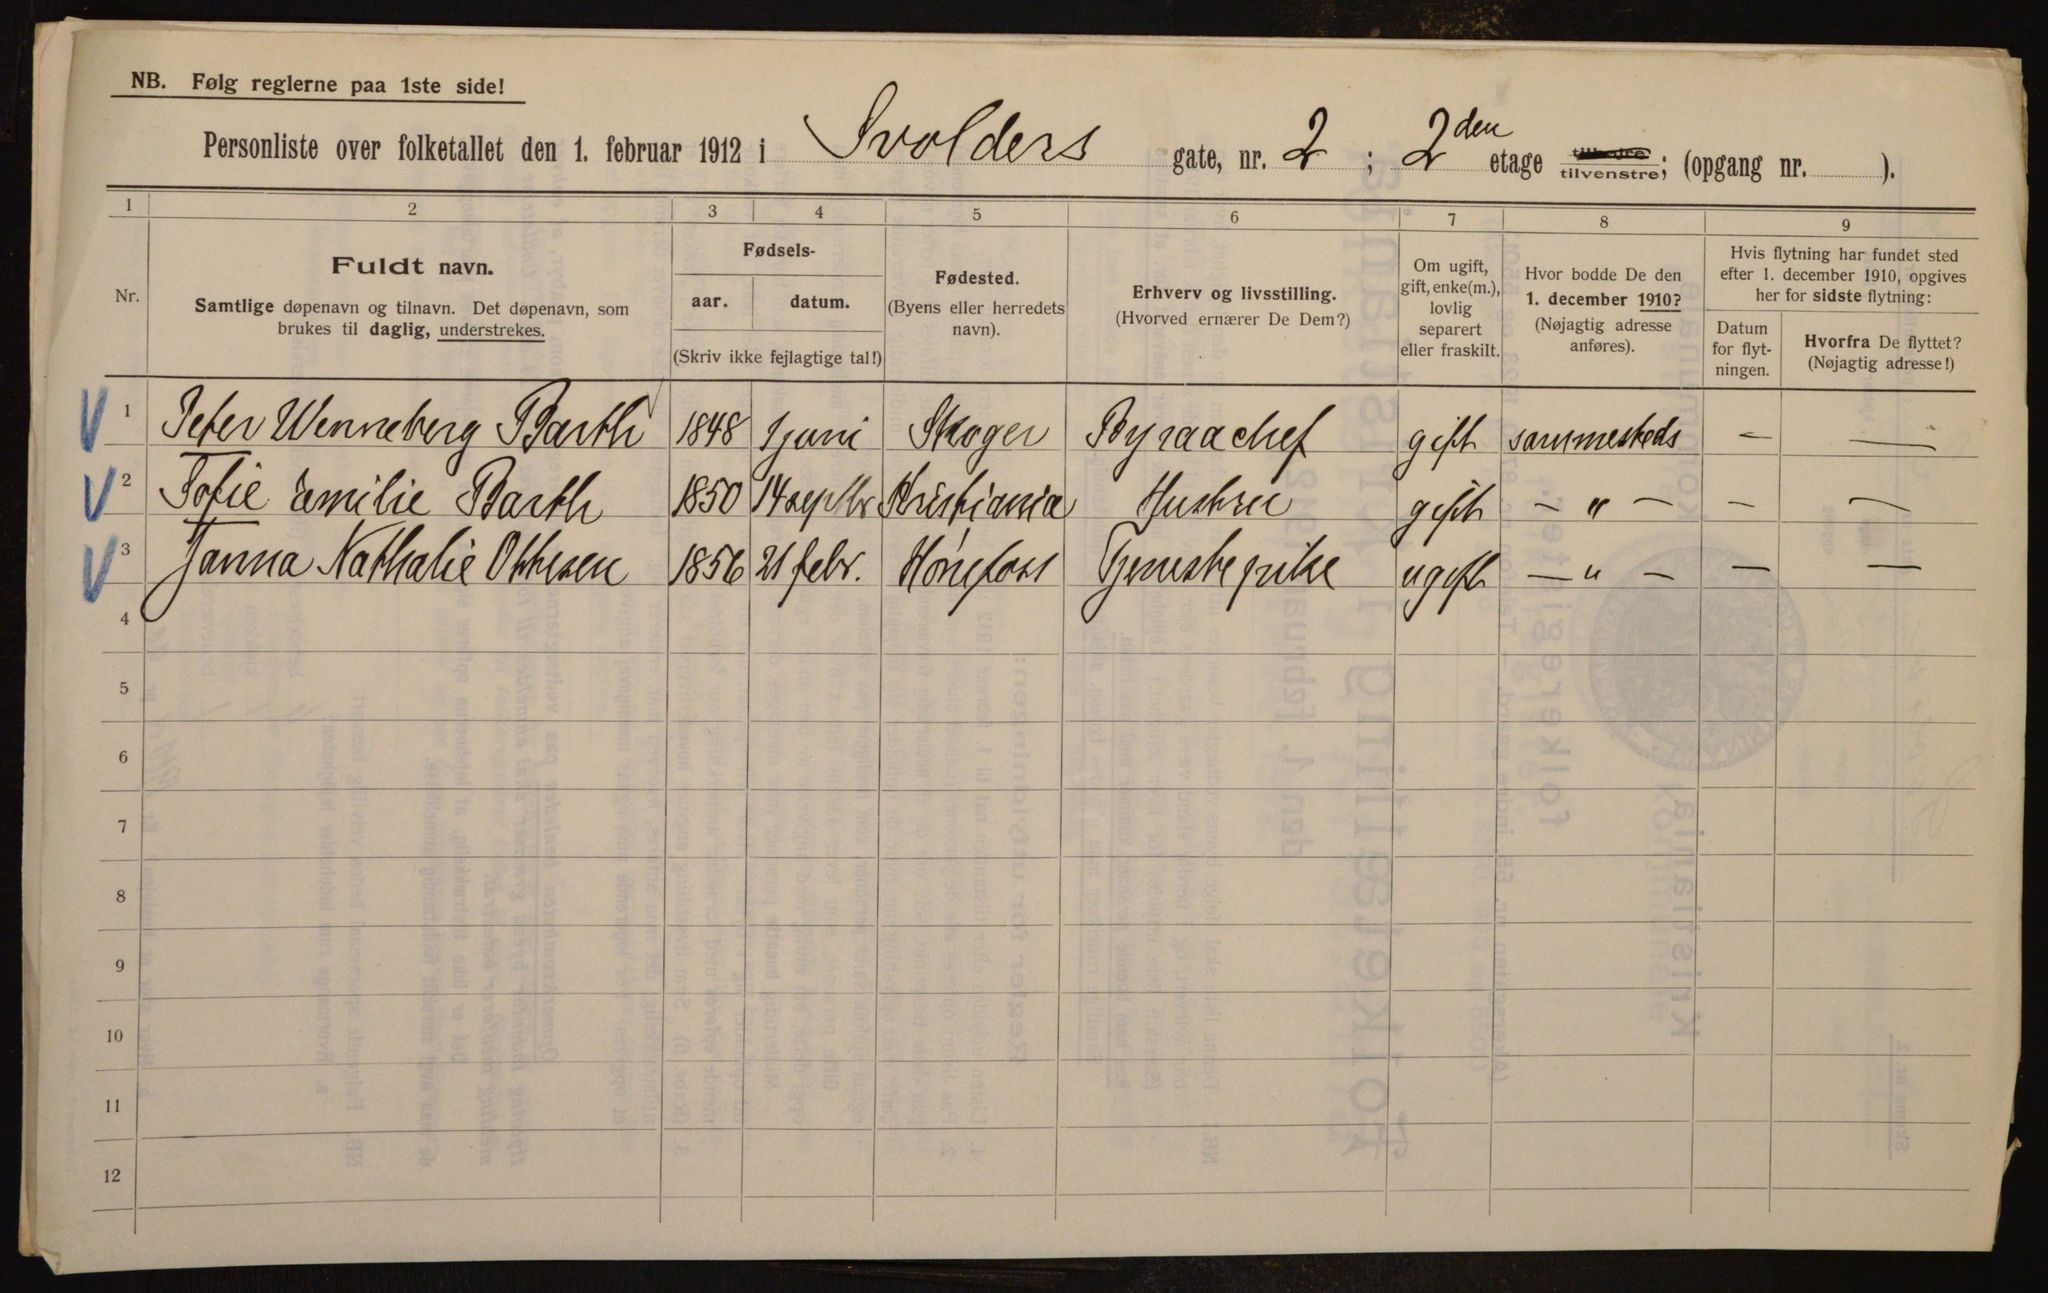 NB. Følg reglerne paa 1ste side!
Personliste over folketallet den 1. februar 1912 i Svolders gate, nr. 2 ; 2den etage tilhøire tilvenstre; (opgang nr. ).
1 2 3 4 5 6 7 8 9
Nr.
Fuldt navn.
Samtlige døpenavn og tilnavn. Det døpenavn, som
brukes til daglig, understrekes.
Fødsels-
aar. datum.
(Skriv ikke fejlagtige tal!)
Fødested.
(Byens eller herredets
navn).
Erhverv og livsstilling.
(Hvorved ernærer De Dem?)
Om ugift,
gift, enke(m.),
lovlig
separert
eller fraskilt.
Hvor bodde De den
1. december 1910?
(Nøjagtig adresse
anføres).
Hvis flytning har fundet sted
efter 1. december 1910, opgives
her for sidste flytning:
Datum
for flyt-
ningen.
Hvorfra De flyttet?
(Nøjagtig adresse!)
V 1 Peter Wenneberg Barth 1848 1 juni Skoger Byraachef gift sammesteds — —
V 2 Sofie Emilie Barth 1850 14 septbr Kristiania Hustru gift — " — — —
V 3 Janna Nathalie Ottesen 1856 21 febr. Hønefoss Tjenestepike ugift — " — — —
4
5
6
7
8
9
10
11
12